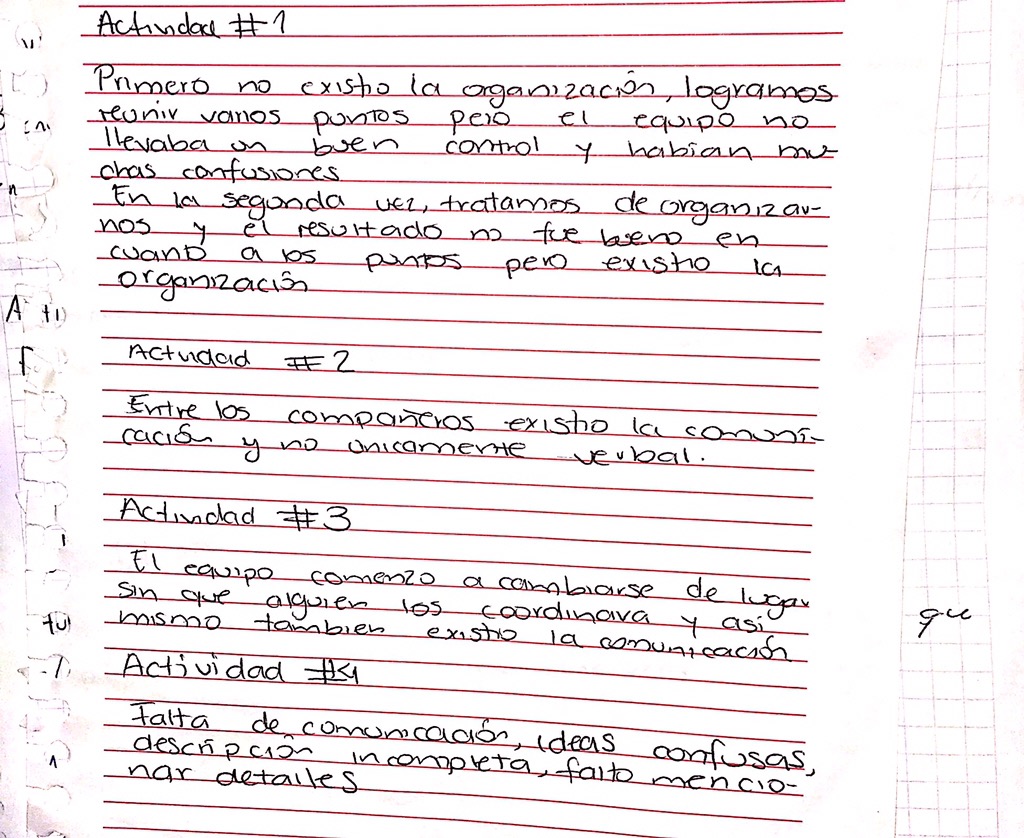 Actividad #1
Primero no existio la organización, logramos
reunir varios puntos pero el equipo no
llevaba un buen control y habian mu-
chas confusiones
En la segunda vez, tratamos de organizar-
nos y el resultado no fue bueno en
cuanto a los puntos pero existio la
organización
Actividad #2
Entre los compañeros existio la comuni-
cación y no unicamente verbal.
Actividad #3
El equipo comenzo a cambiarse de lugar
sin que alguien los coordinava y asi
mismo tambien existio la comunicación
que
Actividad #4
Falta de comunicación, ideas confusas,
descripción incompleta, falto mencio-
nar detalles